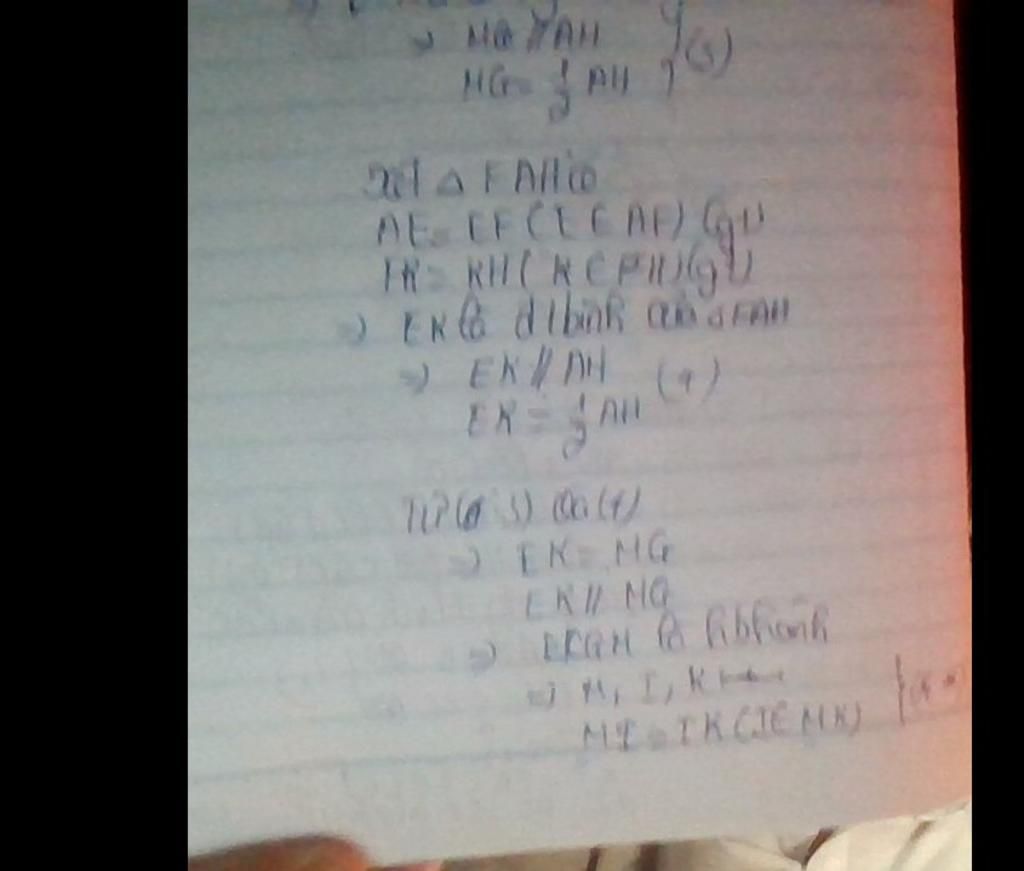 => MG // AH } (3)
MG = 1/2 AH
Xét Δ FAH có
AE = EF (E ∈ AF) (gt)
FK = KH (K ∈ FH) (gt)
=> EK là đ tbình của Δ FAH
=> EK // AH (4)
EK = 1/2 AH
Từ (3) và (4)
=> EK = MG
EK // MG
=> EKGM là hbhành
=> M, I, K
MI = IK (I ∈ MK)